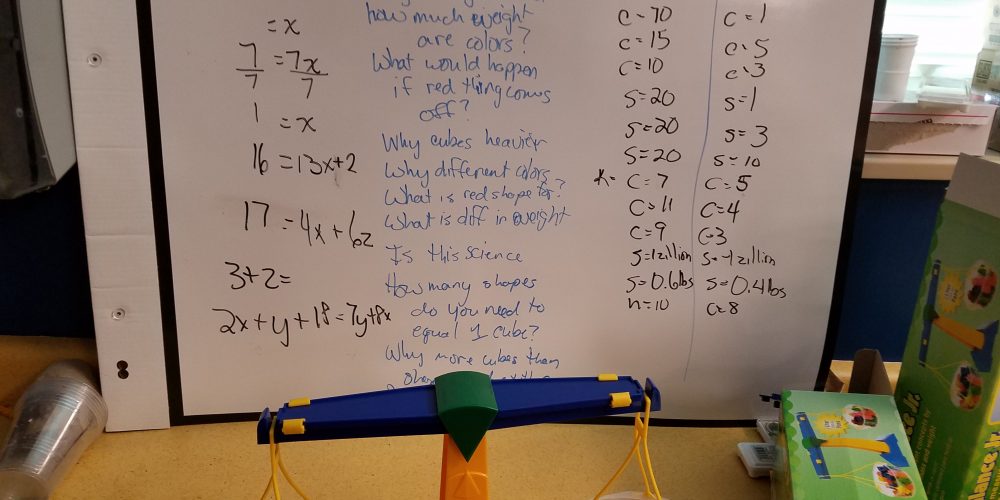 = x
7 = 7x
7 7
1 = x
16 = 13x+2
17 = 4x + 6z
3+2=
2x+y+18=7y+8x
how much weight
are colors?
What would happen
if red thing comes
off?
Why cubes heavier
Why different colors
What is red shape for?
What is diff in weight
Is this science
How many shapes
do you need to
equal 1 cube?
Why more cubes than
C=70
C=15
C=10
S=20
S=20
S=20
K= C=7
C=11
C=9
S=1zillion
S=0.6lbs
h=10
C=1
C=5
C=3
S=1
S=3
S=10
C=5
C=4
C=3
S=-1zillion
S=0.4lbs
C=8
Jr.